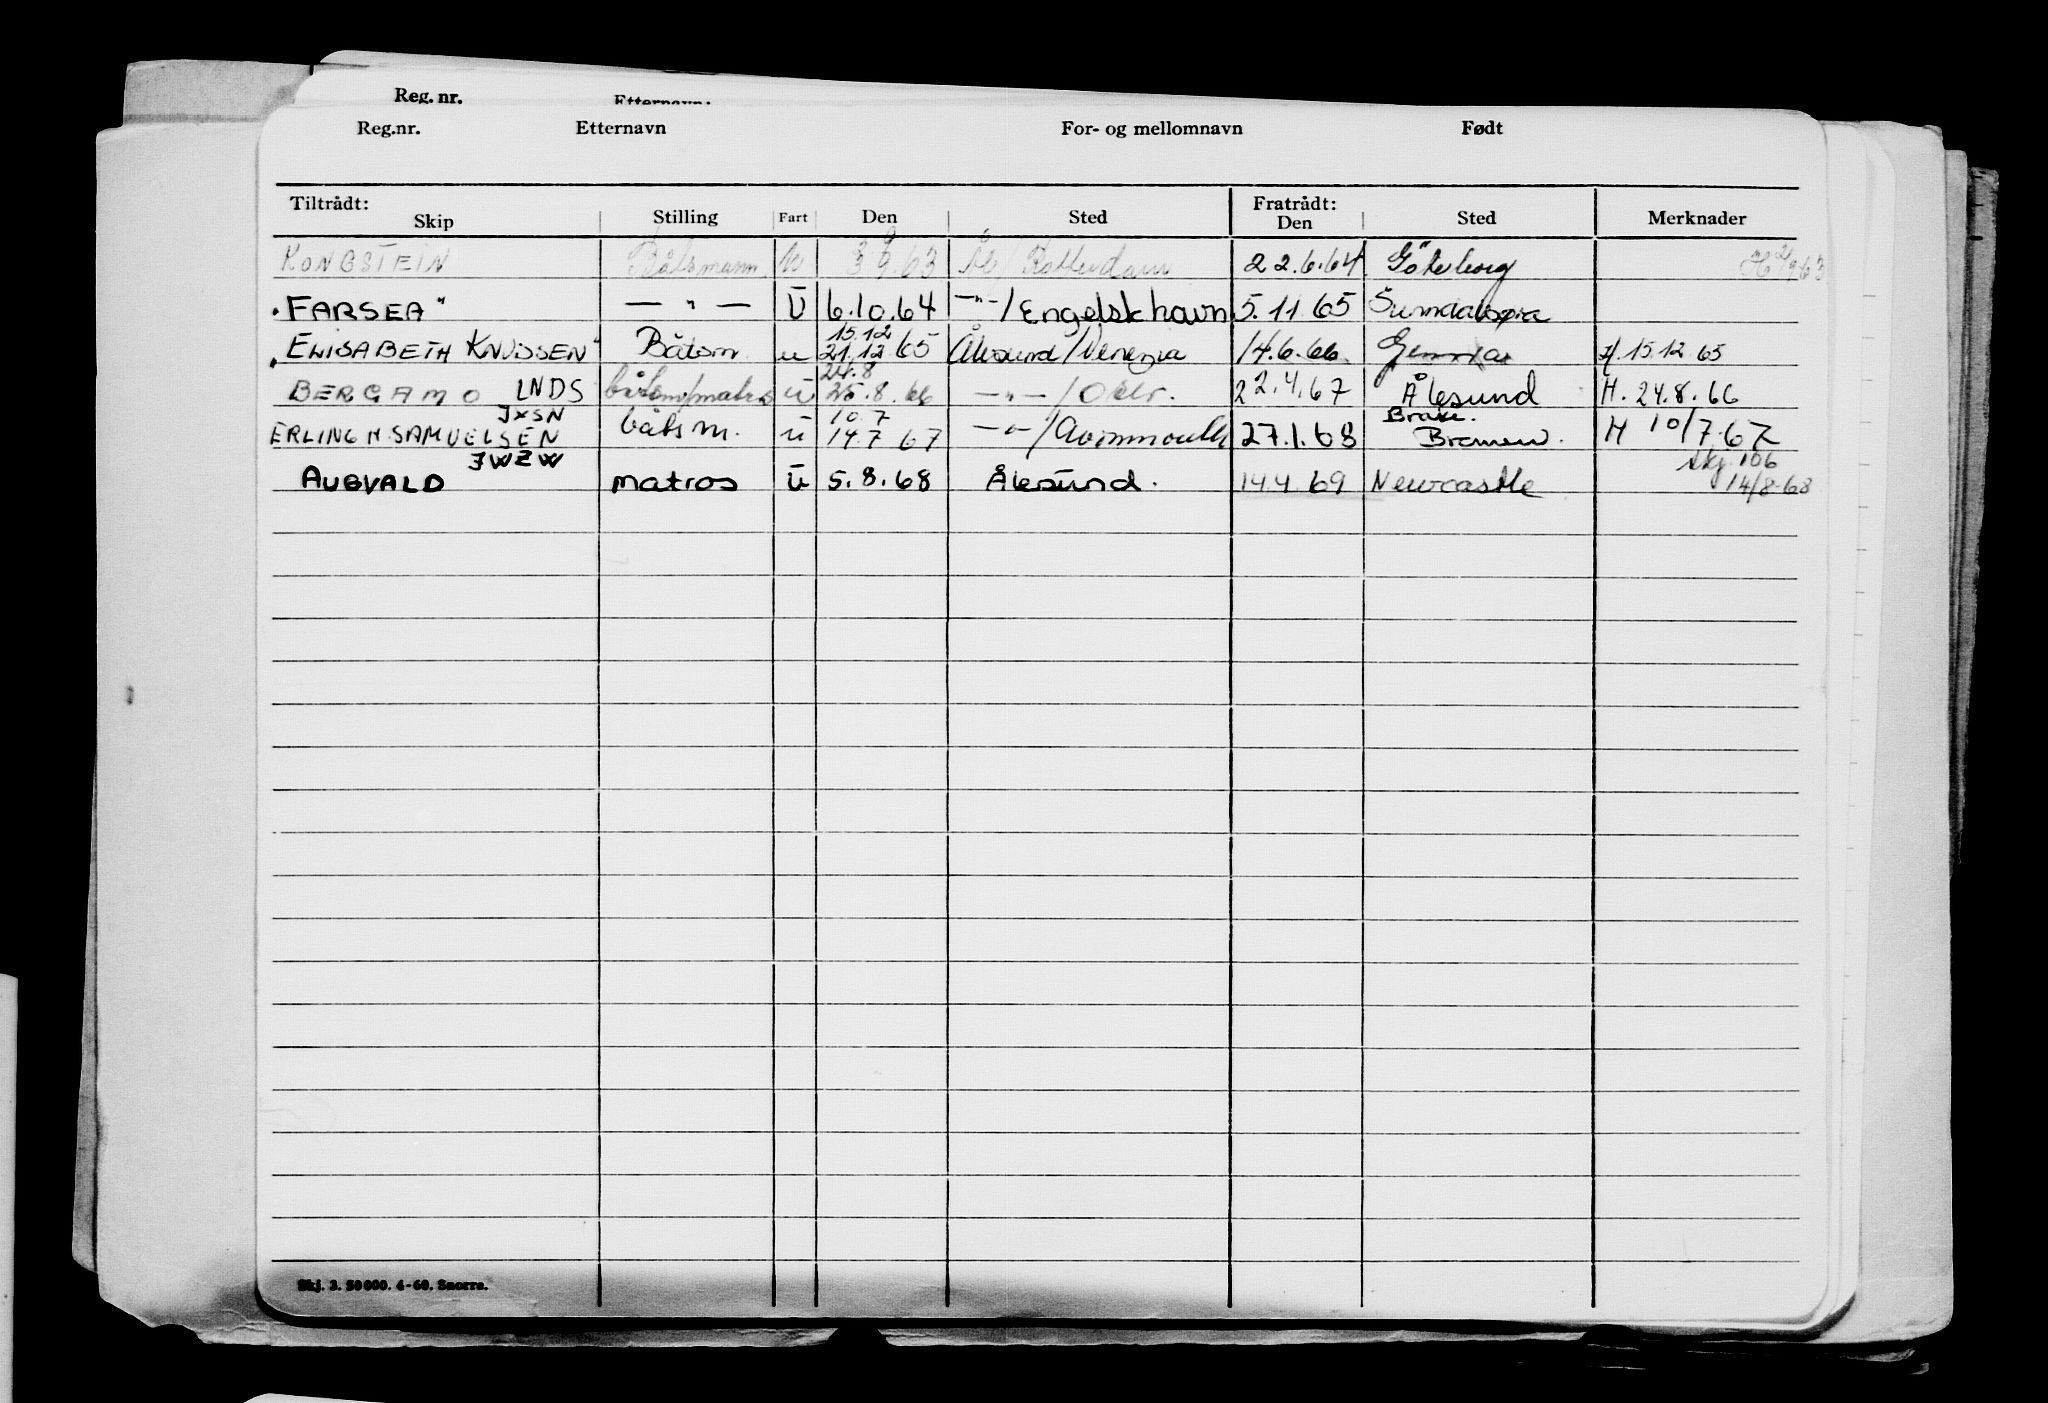 Reg. nr. Etternavn:
Reg.nr. Etternavn For- og mellomnavn Født
Tiltrådt: Fratrådt:
Skip Stilling Fart Den Sted Den Sted Merknader
KONGSTEIN Båtsmann 3 9.63 Ål/Rotterdam 22.6.64 Göteborg H 2/9 63
"FARSEA" — " — U 6.10.64 —"—/Engelsk havn 5.11.65 Sunndalsøra
15.12
"ELISABETH KNUDSEN" Båtsm. u 21.12.65 Ålesund/Venezia 14.6.66 15.12 65
24.8
BERGAMO LNDS båtsm/matros u 25.8.66 —"—/ 22.4.67 Ålesund H. 24.8.66
JXSN 10.7 Brake.
ERLING H. SAMUELSEN båtsm. u 14.7 67 —"—/Avonmouth 27.1.68 Bremen. H 10/7.67
JWZW skj. 106
AUGVALD matros u 5.8.68 Ålesund. 14.4.69 Newcastle 14/8-68
Skj. 3. 50 000. 4-60. Snorre.